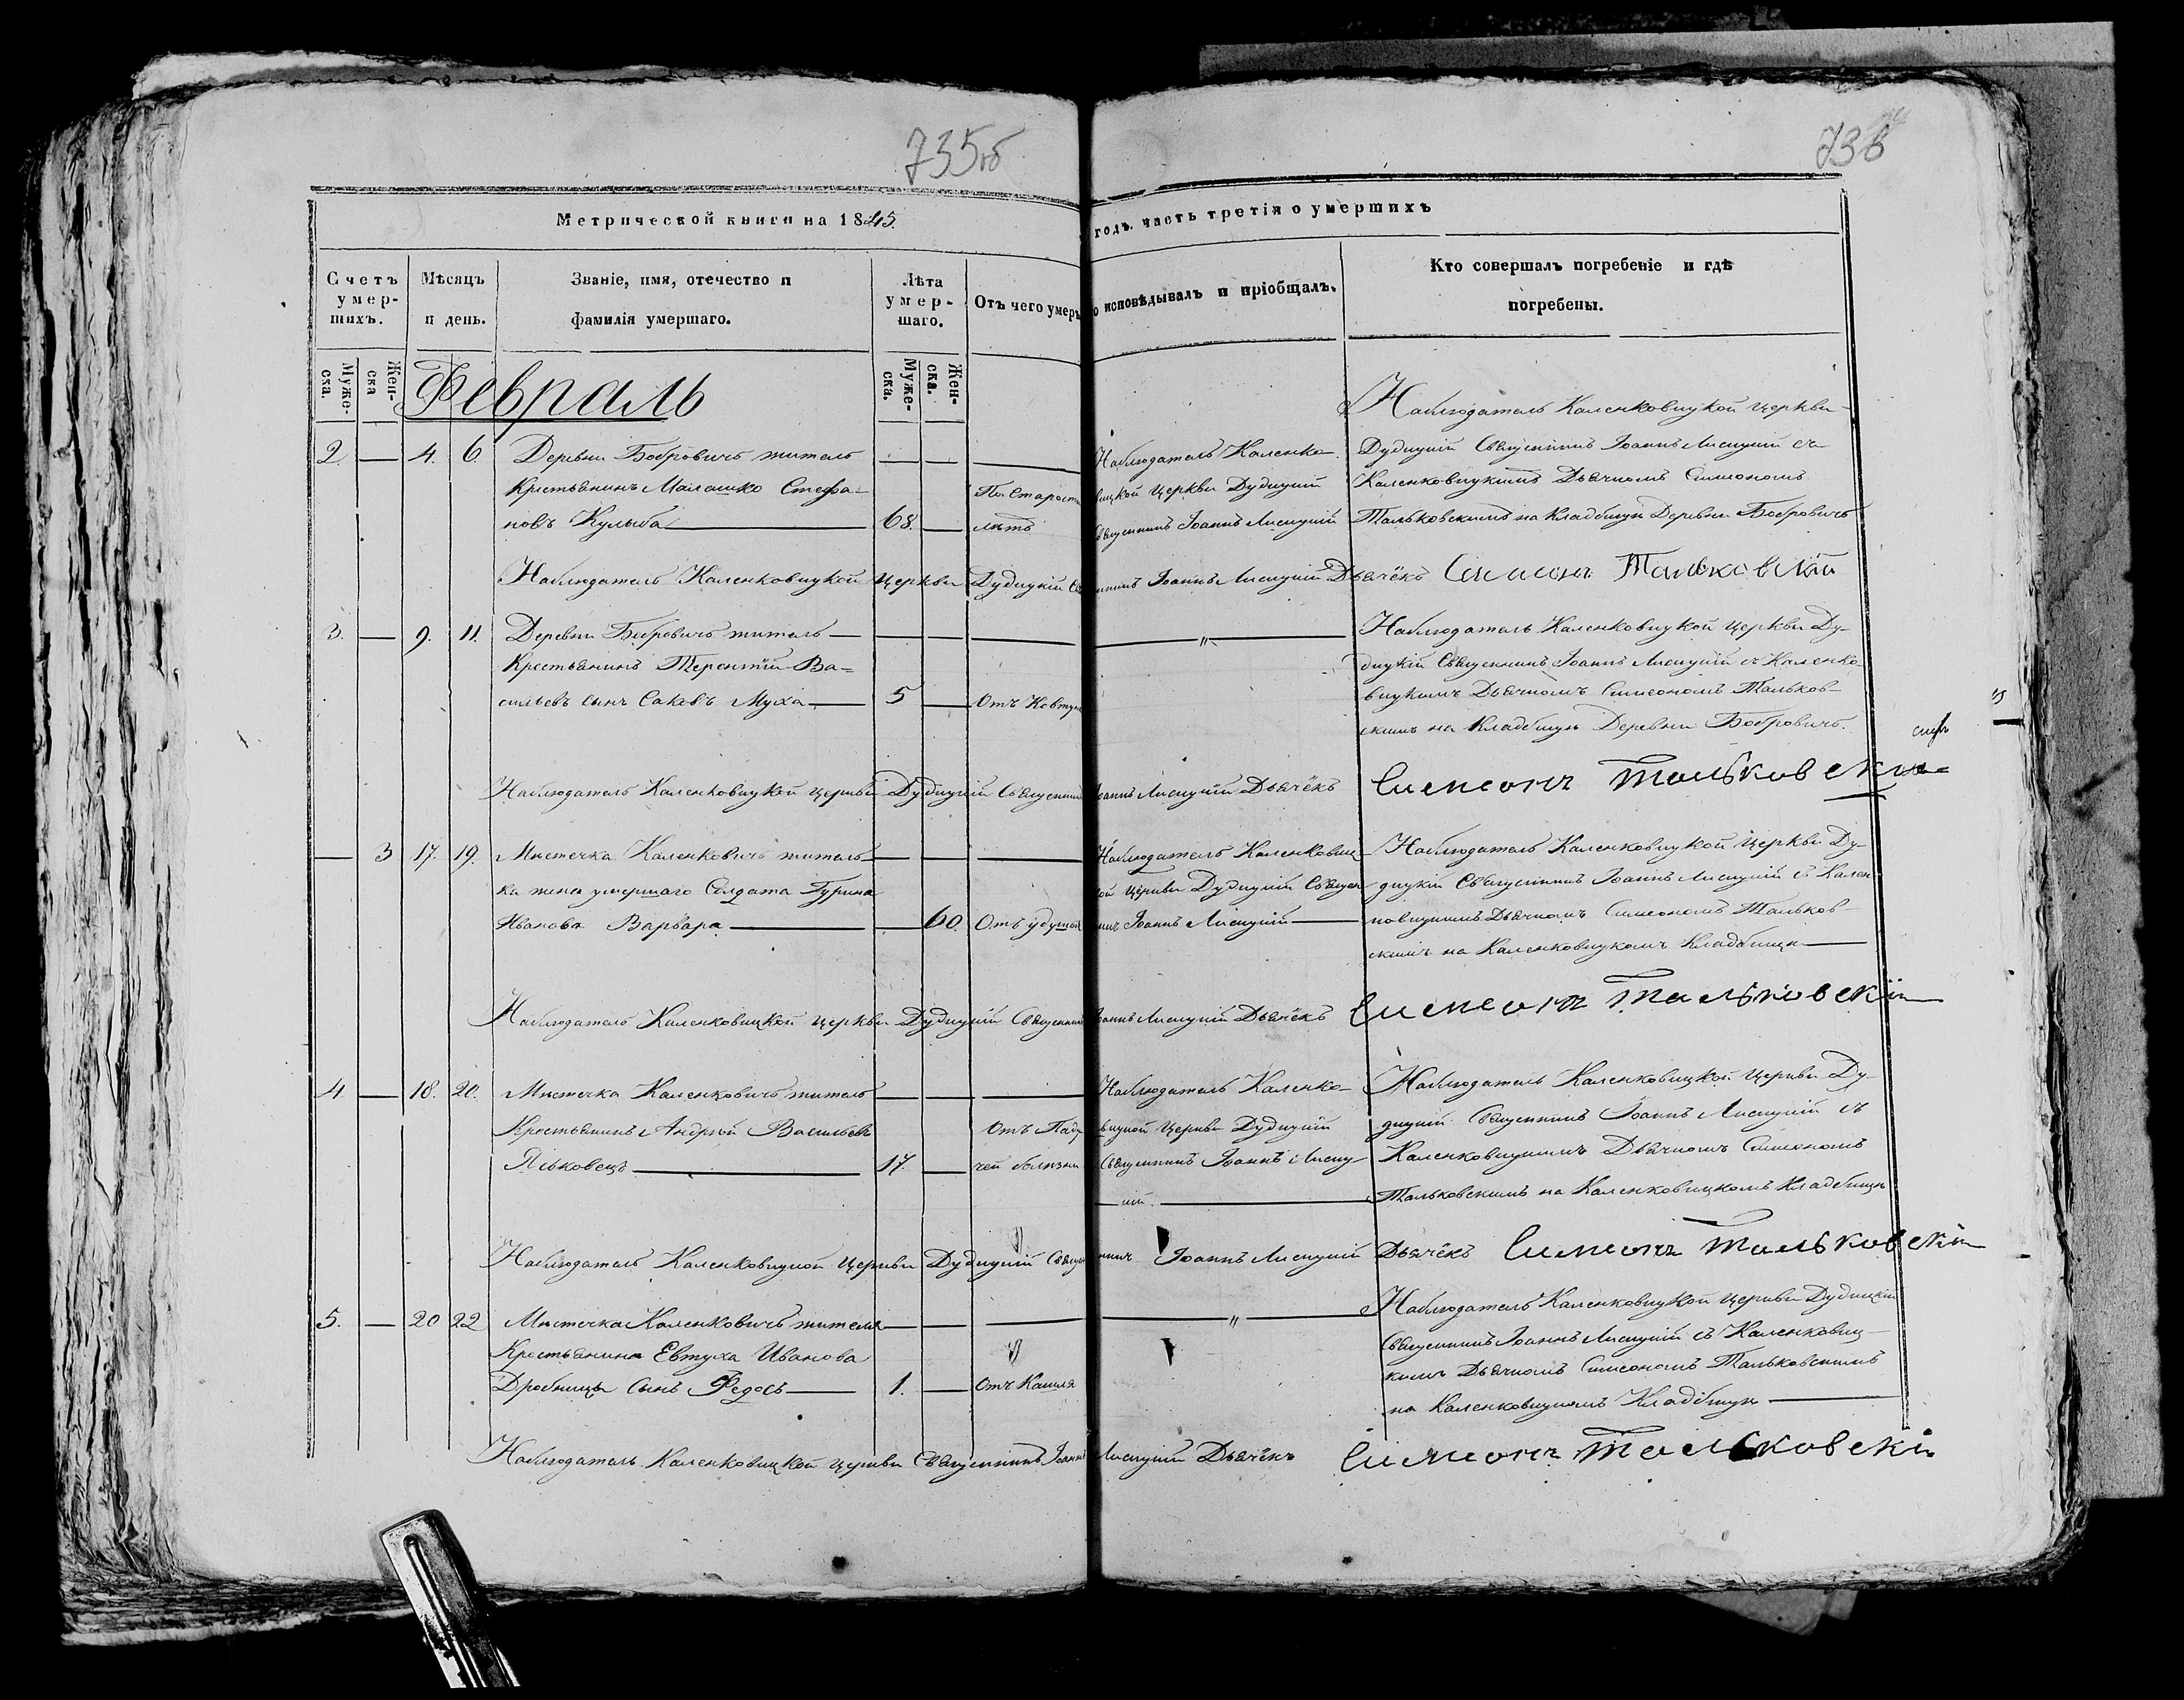 735об
736
Метрической книги на 1845.
годъ. часть третія о умершихъ
Счетъ умер-
шихъ.
Мѣсяцъ
и день.
Званіе, имя, отечество и
фамилія умершаго.
Лѣта
умер-
шаго.
Отъ чего умеръ
о исповѣдывалъ и пріобщалъ.
Кто совершалъ погребеніе и гдѣ
погребены.
Муже-
ска.
Жен-
ска
Муже-
ска.
Жен-
ска.
Февраль
2. — 4. 6. Деревни Бобровичъ житель
Крестьянинъ Малашко Стефа-
новъ Кулыба 68. —
По Старости
лѣтъ
Наблюдатель Каленко-
вицкой Церкви Дудицкій
Священникъ Іоаннъ Лисицкій
Наблюдатель Каленковицкой Церкви
Дудицкій Священникъ Іоаннъ Лисицкій съ
Каленковицкимъ Дьячкомъ Симеономъ
Тальковскимъ на Кладбищѣ Деревни Бобровичъ
Наблюдатель Каленковицкой Церкви Дудицкій Священникъ Іоаннъ Лисицкій Дьячёкъ Симеонъ Тальковскій
3. — 9. 11. Деревни Бобровичъ житель —
Крестьянинъ Терентій Ва-
сильевъ сынъ Саковъ Муха — 5 —
Отъ Ковтун
"
Наблюдатель Каленковицкой Церкви Ду-
дицкій Священникъ Іоаннъ Лисицкій съ Каленко-
вицкимъ Дьячкомъ Симеономъ Тальков-
скимъ на Кладбищѣ Деревни Бобровичъ.
Наблюдатель Каленковицкой Церкви Дудицкій Священникъ Іоаннъ Лисицкій Дьячёкъ Симеонъ Тальковскій
— 3 17. 19. Мѣстечка Каленковичъ житель-
ка жена умершаго Солдата Гурина
Иванова Варвара — 60.
Отъ удушья
Наблюдатель Каленковиц-
кой Церкви Дудицкій Священ-
никъ Іоаннъ Лисицкій —
Наблюдатель Каленковицкой Церкви Ду-
дицкій Священникъ Іоаннъ Лисицкій съ Кален-
ковицкимъ Дьячкомъ Симеономъ Тальков-
скимъ на Каленковицкомъ Кладбищѣ —
Наблюдатель Каленковицкой Церкви Дудицкій Священникъ Іоаннъ Лисицкій Дьячёкъ Симеонъ Тальковскій
4 — 18. 20. Мѣстечка Каленковичъ житель
Крестьянинъ Андрей Васильевъ
17. —
Отъ Паду-
чей болѣзни
Наблюдатель Каленко-
вицкой Церкви Дудицкій
Священникъ Іоаннъ Лисиц-
кій.
Наблюдатель Каленковицкой Церкви Ду-
дицкій Священникъ Іоаннъ Лисицкій съ
Каленковицкимъ Дьячкомъ Симеономъ
Тальковскимъ на Каленковицкомъ Кладбищѣ
Наблюдатель Каленковицкой Церкви Дудицкій Священникъ Іоаннъ Лисицкій Дьячёкъ Симеонъ Тальковскій
5. — 20 22 Мѣстечка Каленковичъ жителя
Крестьянина Евтуха Иванова
Дробницы Сынъ Ѳедосъ — 1. —
Отъ Кашля
"
Наблюдатель Каленковицкой Церкви Дудицкій
Священникъ Іоаннъ Лисицкій съ Каленковиц-
кимъ Дьячкомъ Симеономъ Тальковскимъ
на Каленковицкомъ Кладбищѣ —
Наблюдатель Каленковицкой Церкви Священникъ Іоаннъ Лисицкій Дьячёкъ Симеонъ Тальковскій